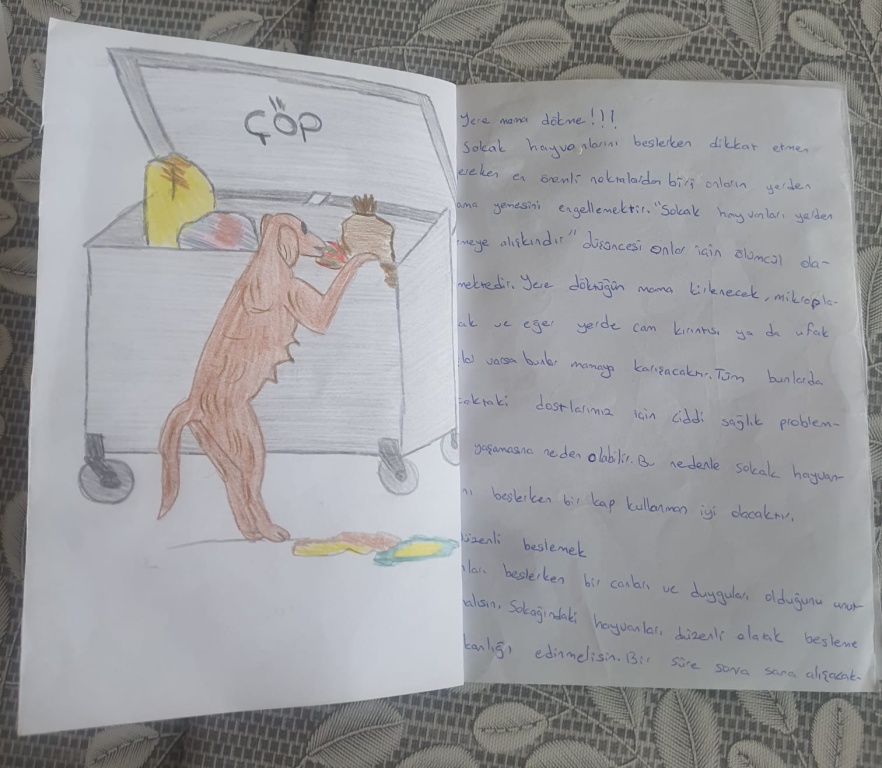 ÇÖP
Yere mama dökme!!!
Sokak hayvanlarını beslerken dikkat etmen
ereken en önemli noktalardan biri onların yerden
ama yemesini engellemektir. "Sokak hayvanları yerden
meye alışkındır" düşüncesi onlar için ölümcül ola-
mektedir. Yere döktüğün mama kirlenecek, mikropla-
ak ve eğer yerde cam kırıntısı ya da ufak
varsa bunlar mamaya karışacaktır. Tüm bunlarda
okaktaki dostlarımız için ciddi sağlık problem-
yaşamasına neden olabilir. Bu nedenle sokak hayvan-
nı beslerken bir kap kullanman iyi olacaktır.
üzenli beslemek
ları beslerken bir canları ve duyguları olduğunu unut-
alısın. Sokağındaki hayvanları düzenli olarak besleme
kanlığı edinmelisin. Bir süre sonra sana alışacak-